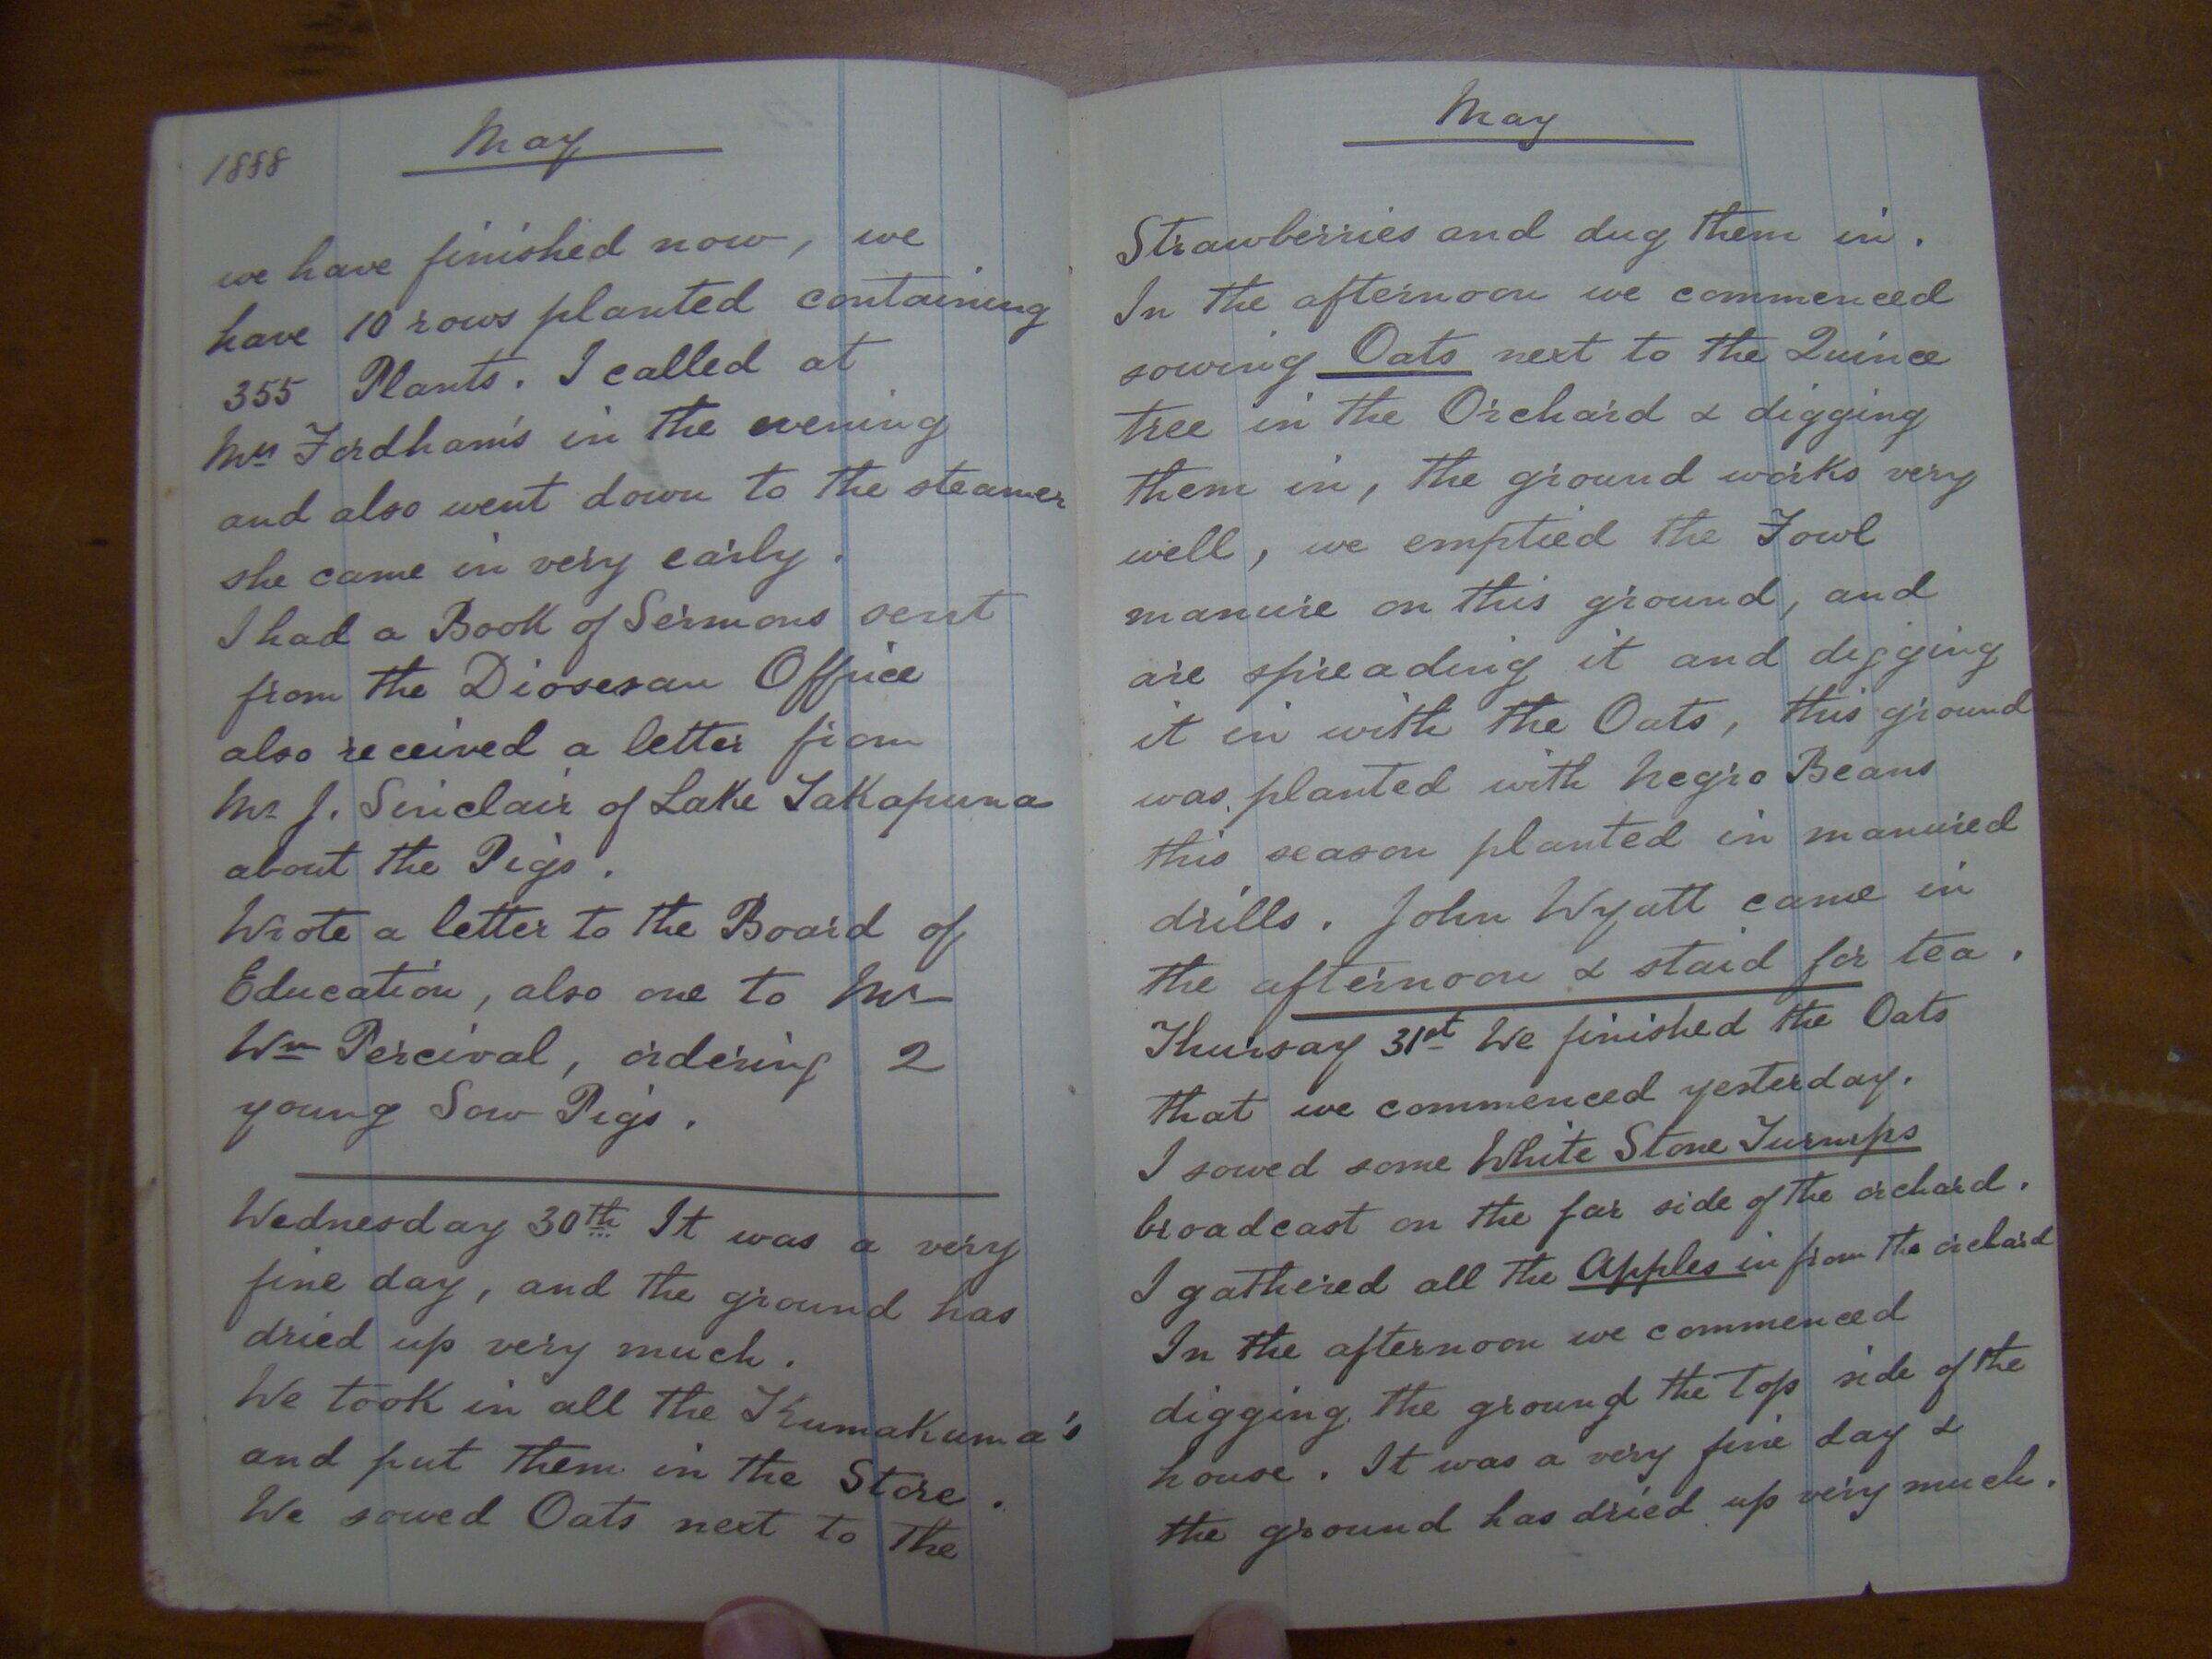 1888 May
we have finished now, we
have 10 rows planted containing
355 Plants. I called at
Mrs Fordham's in the evening
and also went down to the steamer
she came in very early.
I had a Book of Sermons sent
from the Diosesan Office
also received a letter from
Mr J. Sinclair of Lake Takapuna
about the Pigs.
Wrote a letter to the Board of
Education, also one to Mr
Wm Percival, ordering 2
young Sow Pigs.
Wednesday 30th It was a very
fine day, and the ground has
dried up very much.
We took in all the Kumakuma's
and put them in the Store.
We sowed Oats next to the
May
Strawberries and dug them in.
In the afternoon we commenced
sowing Oats next to the Quince
tree in the Orchard & digging
them in, the ground works very
well, we emptied the Fowl
manure on this ground, and
are spreading it and digging
it in with the Oats, this ground
was planted with Negro Beans
this season planted in manured
drills. John Wyatt came in
the afternoon & staid for tea.
Thursay 31st We finished the Oats
that we commenced yesterday.
I sowed some White Stone Turnips
broadcast on the far side of the orchard.
I gathered all the Apples in from the orchard
In the afternoon we commenced
digging the ground the top side of the
house. It was a very fine day &
the ground has dried up very much.